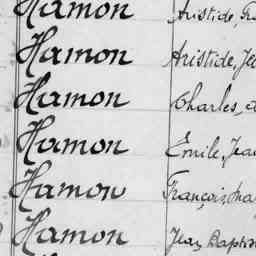 Hamon Aristide,
Hamon Aristide,
Hamon Charles,
Hamon Emile,
Hamon François,
Hamon Jean Baptis